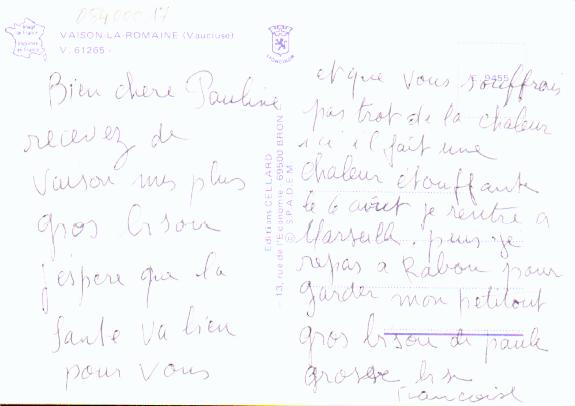 05400017
VAISON-LA-ROMAINE (Vaucluse)
V. 61265 -
LYONCOLOR
Bien chere Pauline
recevez de
Vaison mes plus
gros bisou
j'espere que la
Sante va bien
pour Vous
Editions CELLARD
13, rue de l'Economie - 69500 BRON
© S.P.A.D.E.M.
9455
et que vous souffrais
pas trot de la chaleur
ici il fait une
chaleur étouffante
le 6 août je rentre a
Marseille. puis je
repas a Rabou pour
garder mon petitout
gros bisou de paule
grosse bise
Francoise